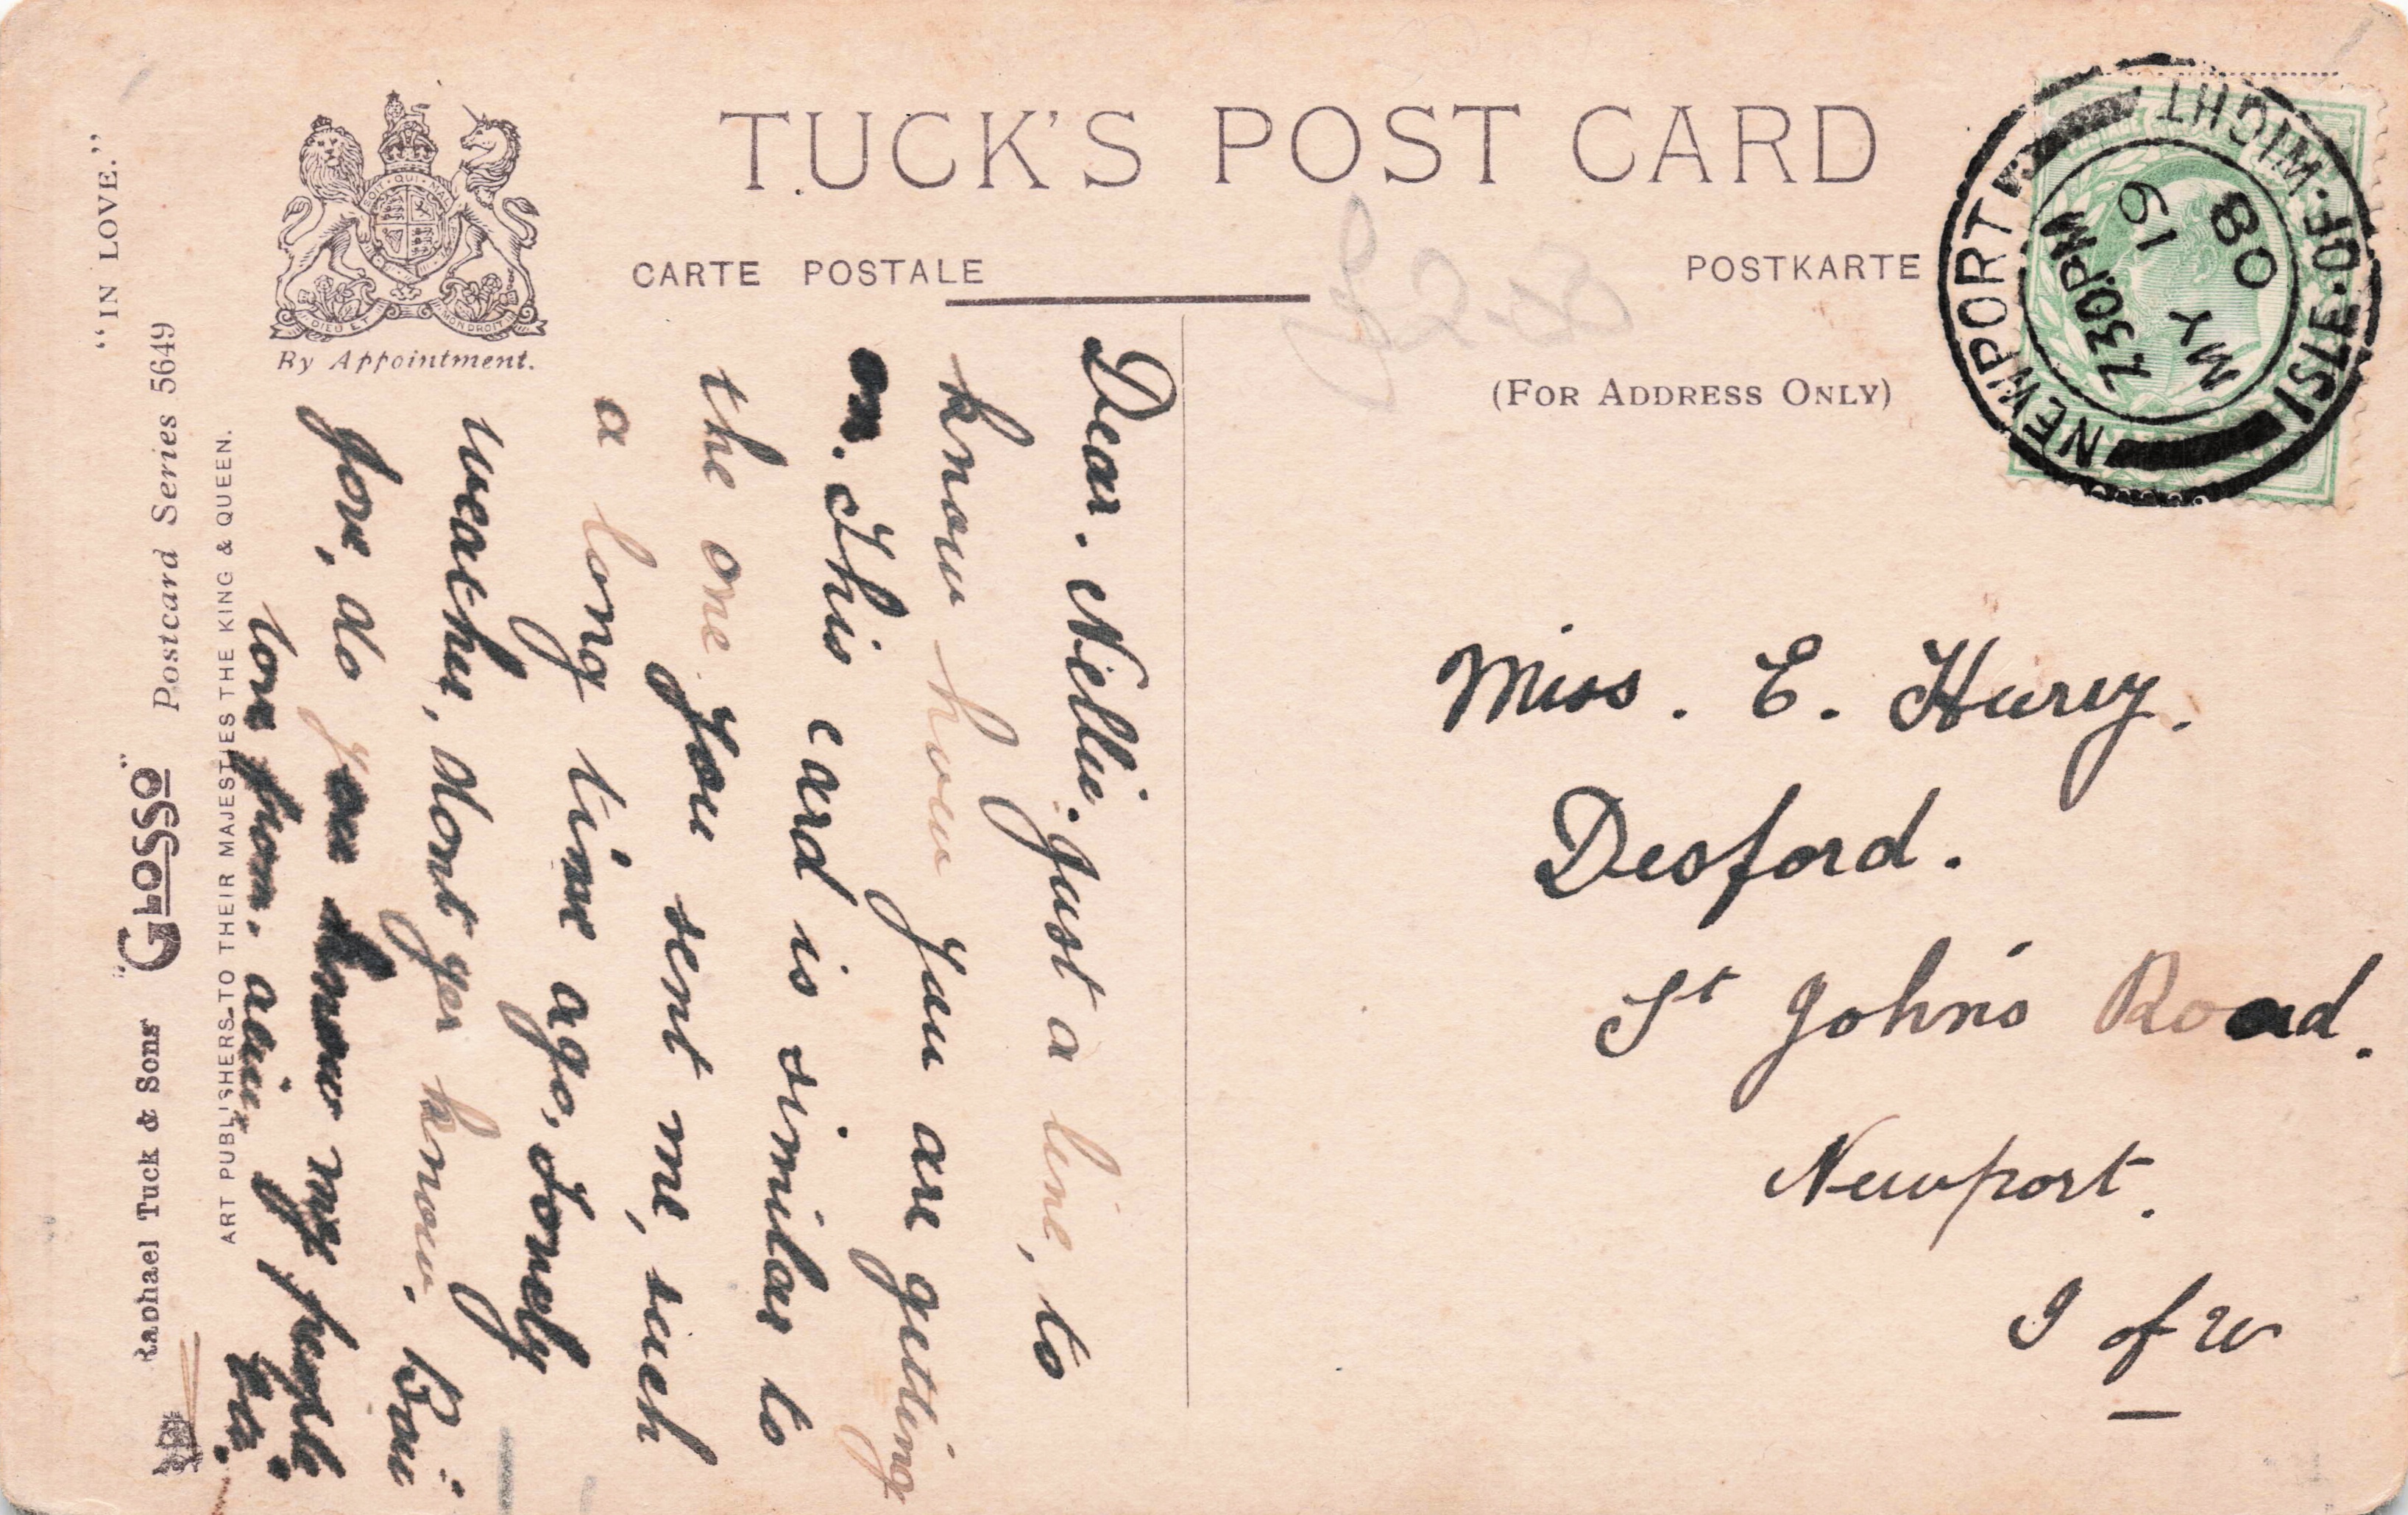 TUCK'S POST CARD
CARTE POSTALE
POSTKARTE
(FOR ADDRESS ONLY)
By Appointment.
DIEU ET MON DROIT
NEWPORT
ISLE·OF·WIGHT
7.30PM
MY 19
08
Dear. Nellie. Just a line, to
know how you are getting
on. This card is similar to
the one you sent me, such
a long time ago, Lovely
weather, dont yer know.
Jove, do you know my people
love from.
Miss. E. Hurry.
Desford.
St John's Road.
Newport.
I of W
"IN LOVE."
Raphael Tuck & Sons "GLOSSO" Postcard Series 5649
ART PUBLISHERS TO THEIR MAJESTIES THE KING & QUEEN.